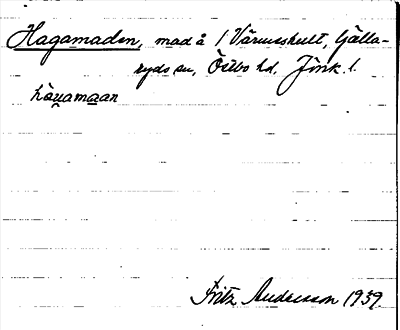 Hagamaden, mad å 1 Värmeshult, Gälla-
ryds sn, Östbo hd, Jönk. l.
hagamaan
Fritz Andersson 1939.